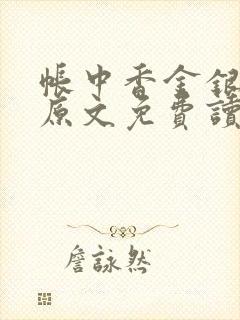 帳中香金銀
原文免費讀
詹詠然